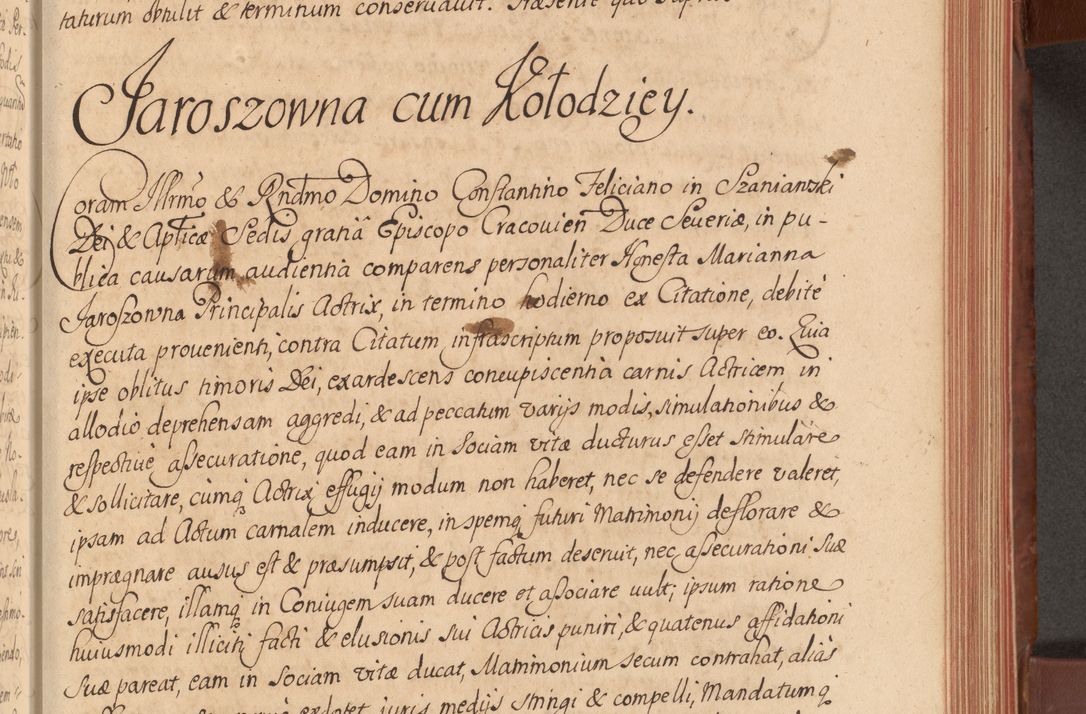 taturum obtulit & terminum conservavit. Præsente quo supra
Jaroszowna cum Kołodziey.
Coram Illrmo & Rndmo Domino Constantino Feliciano in Szaniawski
Dei & Aplicæ Sedis gratiâ Episcopo Cracovien Duce Severiæ, in pu-
blica causarum audientia comparens personaliter Honesta Marianna
Jaroszowna Principalis Actrix, in termino hodierno ex Citatione, debite
executa provenienti, contra Citatum infrascriptum proposuit super eo. Quia
ipse oblitus timoris Dei, exardescens concupiscentia carnis Actricem in
allodio deprehensam aggredi, & ad peccatum varijs modis, simulationibus &
respectivè assecuratione, quod eam in Sociam vitæ ducturus esset stimulare
& sollicitare, cumq; Actrix effugij modum non haberet, nec se defendere valeret,
ipsam ad Actum carnalem inducere, in spemq; futuri Matrimonij deflorare &
imprægnare ausus est & præsumpsit, & post factum deseruit, nec assecurationi suæ
satisfacere, illamq; in Coniugem suam ducere et associare vult; ipsum ratione
huiusmodi illiciti facti & elusionis sui Actricis puniri, & quatenus affidationi
suæ pareat, eam in Sociam vitæ ducat, Matrimonium secum contrahat, aliàs
iuris medijs stringi & compelli, Mandatumq;